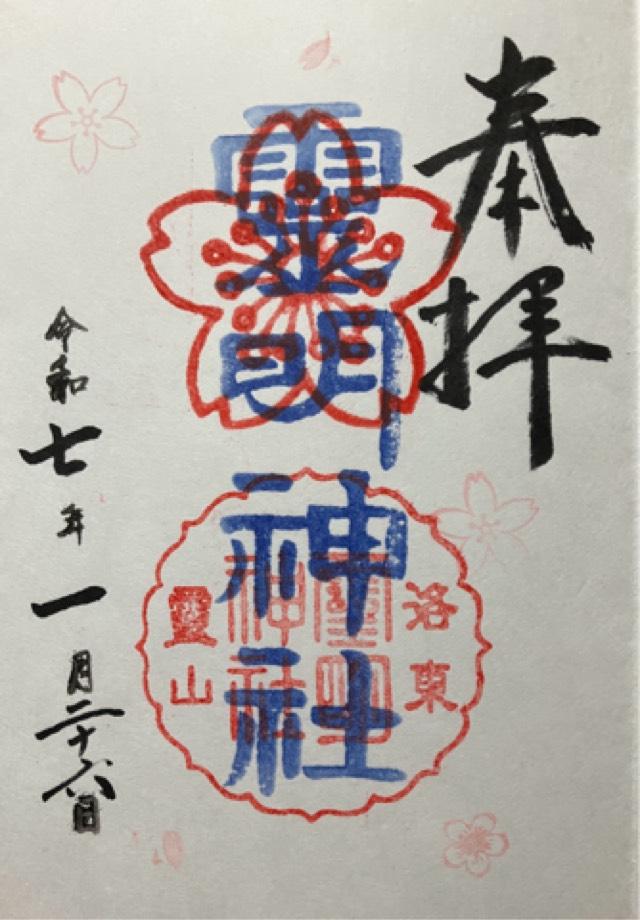 奉拝
霊明神社
洛東
霊明
神社
靈山
令和七年一月二十六日